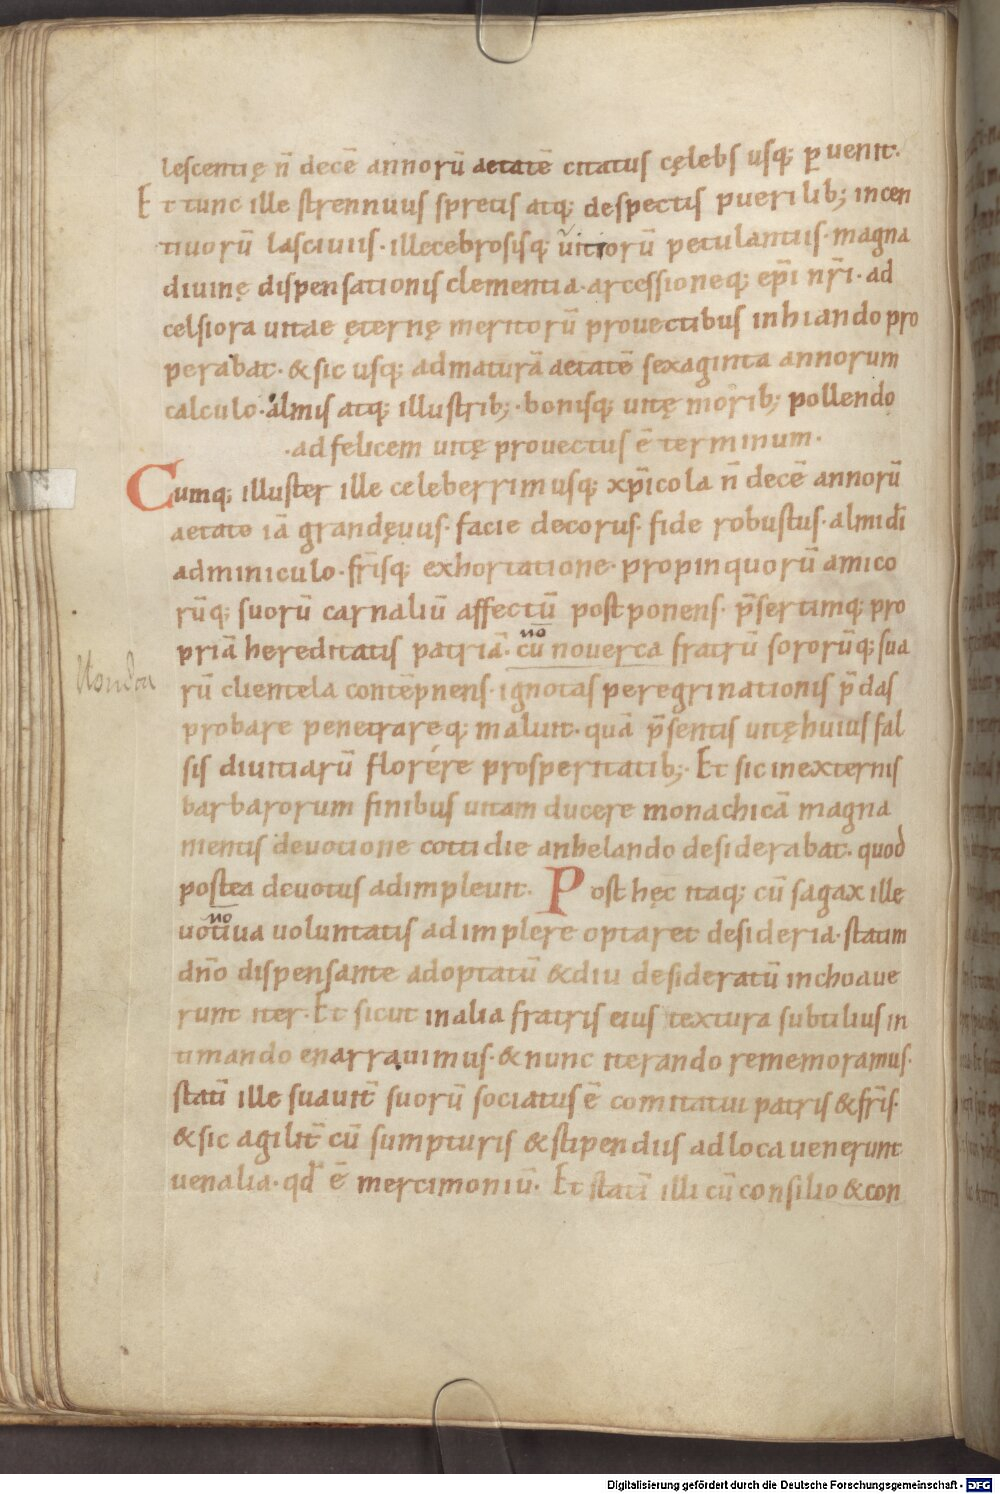 lescentię n̄ decē annorū aetatē citatus cęlebs usq; ꝑuenit.
Et tunc ille strennuus spretis atq; despectis puerilib; incen
tiuorū lasciuiis · illecebrosisq; uitiorū petulantiis · magna
diuinę dispensationis clementia · arcessioneq; ep̄i nr̄i · ad
celsiora uitae ęternę meritorū prouectibus inhiando pro
perabat · & sic usq; ad maturā aetatē sexaginta annorum
calculo · almis atq; illustrib; · bonisq; uitę morib; pollendo
· ad felicem uitę prouectus ē terminum ·
Cumq; illuster ille celeberrimusq; xp̄icola n̄ decē annorū
aetate iā grandęuus · facie decorus · fide robustus · almi dī
adminiculo · fr̄isq; exhortatione · propinquorū amico
rūq; suorū carnaliū affectū postponens · p̄sertimq; pro
no
priā hereditatis patriā · cū nouerca fratrū sororūq; sua
rū clientela contēpnens · ignotas peregrinationis p̄das
probare penetrareq; maluit · quā p̄sentis uitę huius fal
sis diuitiarū florére prosperitatib; · Et sic in externis
barbarorum finibus uitam ducere monachicā magna
mentis deuotione cottidie anhelando desiderabat · quod
postea deuotus adimpleuit · Post hęc itaq; cū sagax ille
no
uotiua uoluntatis adimplere optaret desideria · statim
dn̄o dispensante adoptatū & diu desideratū inchoaue
runt iter · Et sicut in alia fratris eius textura subtilius in
timando enarrauimus · & nunc iterando rememoramus ·
statī ille suauit̄ suorū sociatus ē comitatui patris & fr̄is ·
& sic agilit̄ cū sumpturis & stipendiis ad loca uenerunt
uenalia · qd̄ ē mercimoniū · Et statī illi cū consilio & con
Digitalisierung gefördert durch die Deutsche Forschungsgemeinschaft - DFG